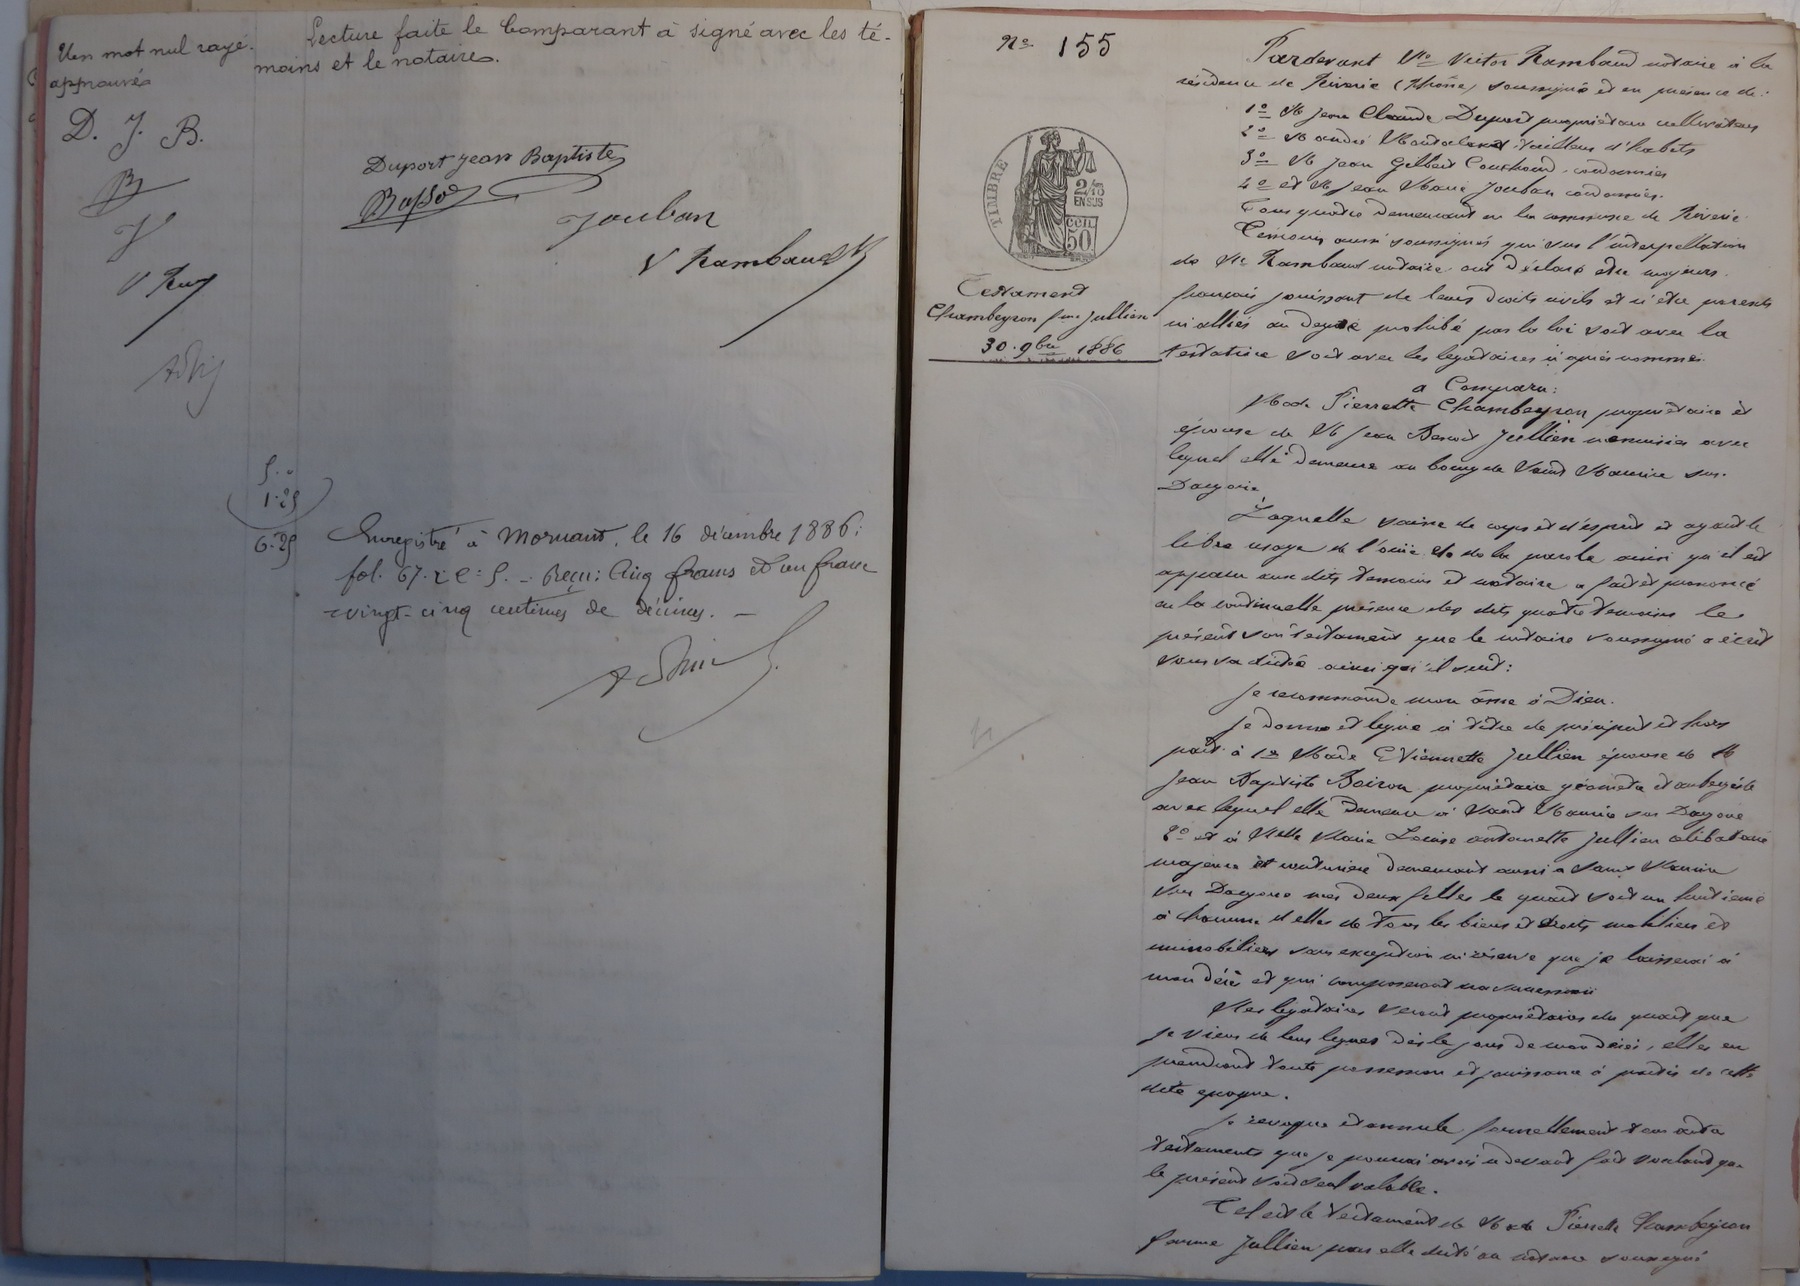 Un mot nul rayé
approuvé
D. J. B.
V Ray
Lecture faite le Comparant à signé avec les té-
moins et le notaire.
Duport Jean Baptiste
Jouban
V Rambaud
5. "
1.25
6.25
Enregistré à Mornant, le 16 décembre 1886;
fol. 67. r. c: 5. - Reçu: Cinq francs et un franc
vingt-cinq centimes de décimes. -
No 155
TIMBRE
2/10
EN SUS
50
Testament
Chambeyron fme Jullien
30. 9bre 1886
Pardevant Me Victor Rambaud notaire à la
résidence de Riverie (Rhône) soussigné et en présence de:
1o M Jean Claude Duport propriétaire cultivateur
2o M André tailleur d'habits
3o M Jean Gilbert Couchoud, cordonnier
4o et M Jean Marie Jouban cordonnier.
Tous quatre demeurant en la commune de Riverie.
Témoins aussi soussignés qui sur l'interpellation
de Me Rambaud notaire ont déclaré être majeurs.
français jouissant de leurs droits civils et n'être parents
ni alliés au degré prohibé par la loi soit avec la
testatrice soit avec les légataires ci après nommés.
a Comparu:
Made Pierrette Chambeyron propriétaire et
épouse de M Jean Benoit Jullien menuisier avec
lequel elle demeure au bourg de Saint Maurice sur
Dargoire
Laquelle saine de corps et d'esprit et ayant le
libre usage de l'ouie et de la parole ainsi qu'il est
apparu aux dits témoins et notaire a fait et prononcé
en la continuelle présence des dits quatre témoins le
présent son testament que le notaire soussigné a écrit
sous sa dictée ainsi qu'il suit:
Je recommande mon âme à Dieu.
Je donne et lègue à titre de préciput et hors
part à 1o Made Etiennette Jullien épouse de M
Jean Baptiste Boiron propriétaire géomètre et aubergiste
avec lequel elle demeure à Saint Maurice sur Dargoire
2o et à Melle Marie Louise Antoinette Jullien célibataire
majeure et couturière demeurant aussi à Saint Maurice
sur Dargoire mes deux filles le quart soit un huitième
à chacune d'elles de tous les biens et droits mobiliers et
immobiliers sans exception ni réserve que je laisserai à
mon décès et qui composeront ma succession
Mes légataires seront propriétaires du quart que
je viens de leur léguer dès le jour de mon décès, elles en
prendront toute possession et jouissance à partir de cette
dite époque.
Je révoque et annule formellement tous autres
testaments que je pourrai avoir ci devant fait voulant que
le présent soit seul valable.
Tel est le testament de Made Pierrette Chambeyron
femme Jullien par elle dicté au notaire soussigné